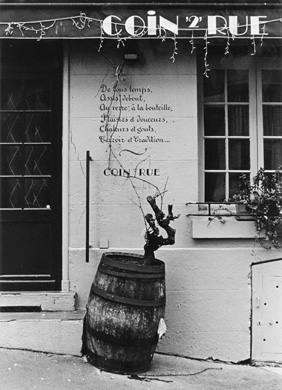 COIN '2' RUE
De tous temps,
Assis, debout,
Au verre, à la bouteille,
Plaisirs et douceurs,
Chaleurs et gouts,
Terroir et Tradition...
COIN RUE